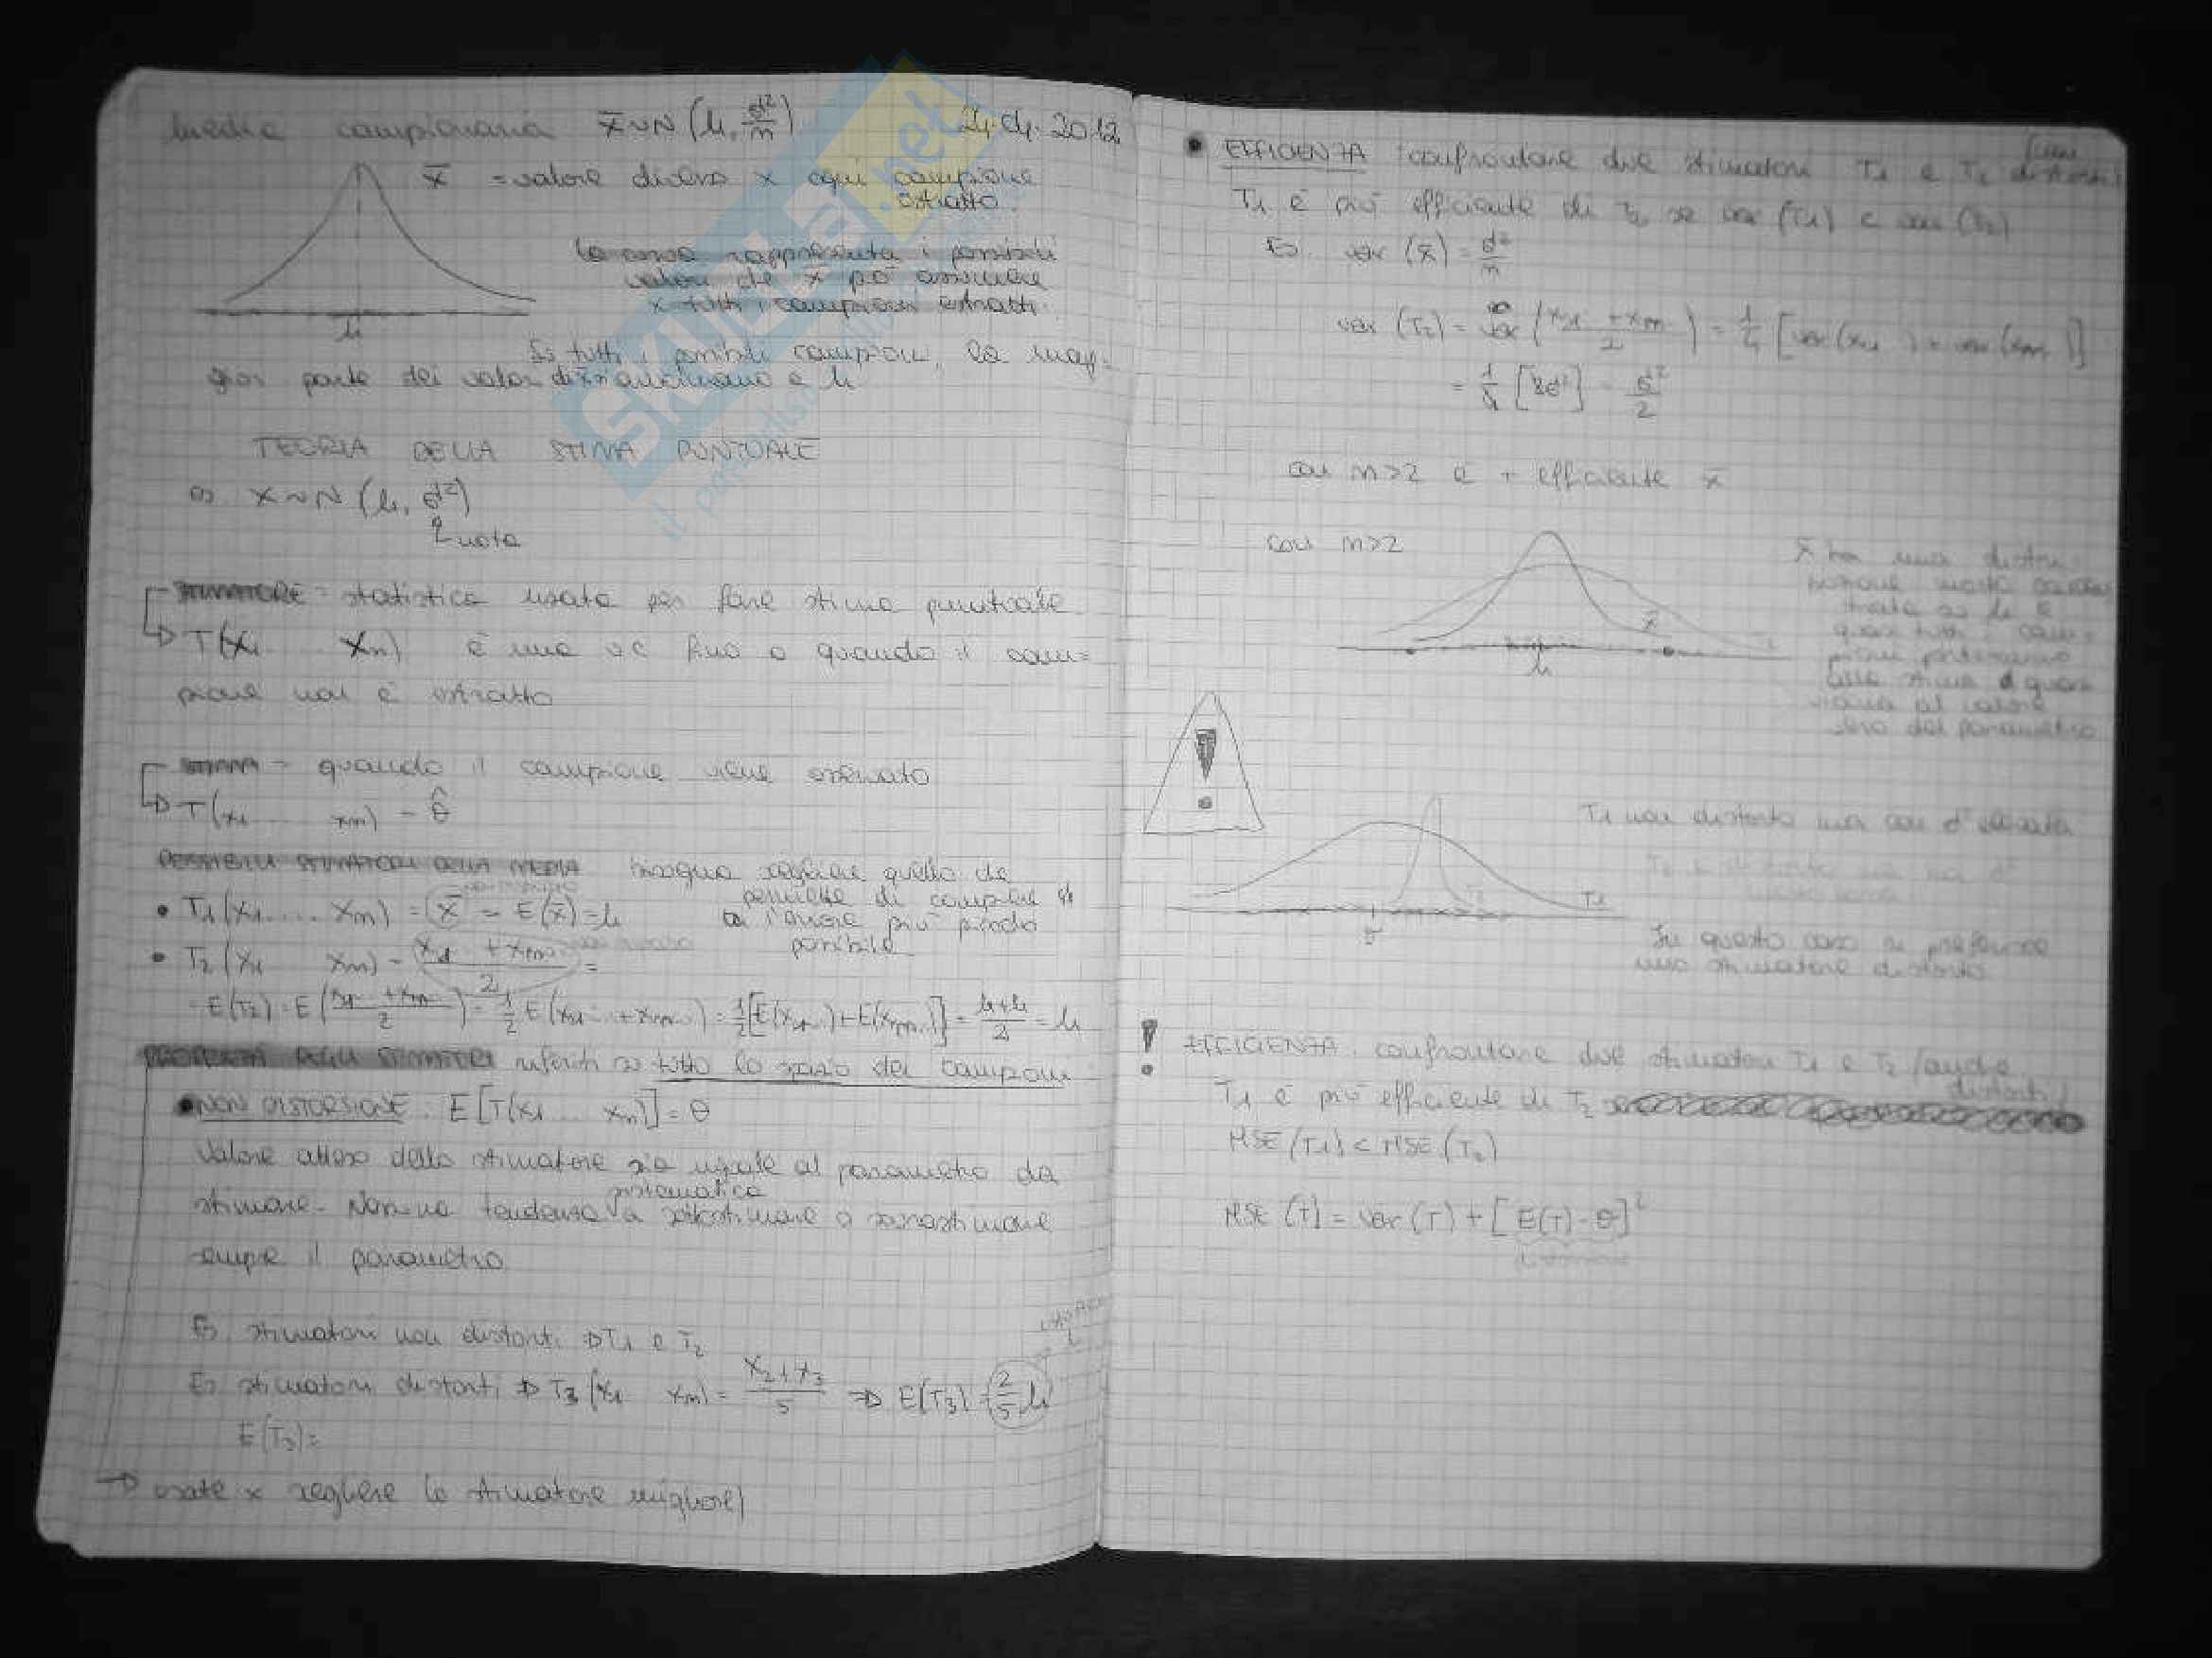 Media campionaria X̄ ~ N (μ, σ²/n) 24.04.2012
x̄ = valore diverso x ogni campione
estratto.
la curva rappresenta i possibili
valori che x̄ può assumere
x tutti i campioni estratti.
Su tutti i possibili campioni, la mag-
gior parte dei valori di x̄ si avvicinano a μ
μ
TEORIA DELLA STIMA PUNTUALE
es X ~ N (μ, σ²)
nota
STIMATORE = statistica usata per fare stima puntuale
T(X1 ... Xn) è una vc fino a quando il cam-
pione non è estratto
STIMA = quando il campione viene osservato
T(x1 ... xn) = θ̂
POSSIBILI STIMATORI DELLA MEDIA bisogna scegliere quello che
permette di compiere
l'errore più piccolo
possibile
• T1(X1 .... Xn) = X̄ = E(X̄) = μ
• T2(X1 Xn) = (X1 + Xn)/2 =
= E(T2) = E((X1 + Xn)/2) = 1/2 E(X1 + Xn) = 1/2 [E(X1) + E(Xn)] = (μ+μ)/2 = μ
PROPRIETÀ DEGLI STIMATORI riferiti su tutto lo spazio dei campioni
• NON DISTORSIONE: E[T(X1 ... Xn)] = θ
Valore atteso dello stimatore sia uguale al parametro da
stimare. Non ha tendenza sistematica a sottostimare o sovrastimare
sempre il parametro
Es. stimatori non distorti ⇒ T1 e T2
Es stimatori distorti ⇒ T3 (X1 Xn) = (X2+X3)/5 ⇒ E(T3) = 2/5 μ
E(T3) =
→ usate x scegliere lo stimatore migliore
• EFFICIENZA: confrontare due stimatori T1 e T2 (non distorti)
T1 è più efficiente di T2 se var (T1) < var (T2)
Es. var (x̄) = σ²/n
var (T2) = var ((X1 + Xn)/2) = 1/4 [var(X1) + var(Xn)]
= 1/4 [2σ²] = σ²/2
con n>2 è + efficiente x̄
con n>2
x̄
μ
x̄ ha una distri-
buzione molto concen-
trata su μ e
quasi tutti i cam-
pioni porteranno
alla stima quasi
vicina al valore
vero del parametro
!
T1 non distorto ma con σ² elevata
T1
In questo caso si preferisce
uno stimatore distorto
! EFFICIENZA: confrontare due stimatori T1 e T2 (anche
distorti)
T1 è più efficiente di T2
MSE (T1) < MSE (T2)
MSE (T) = var (T) + [E(T) - θ]²
distorsione
SKUOLA.net